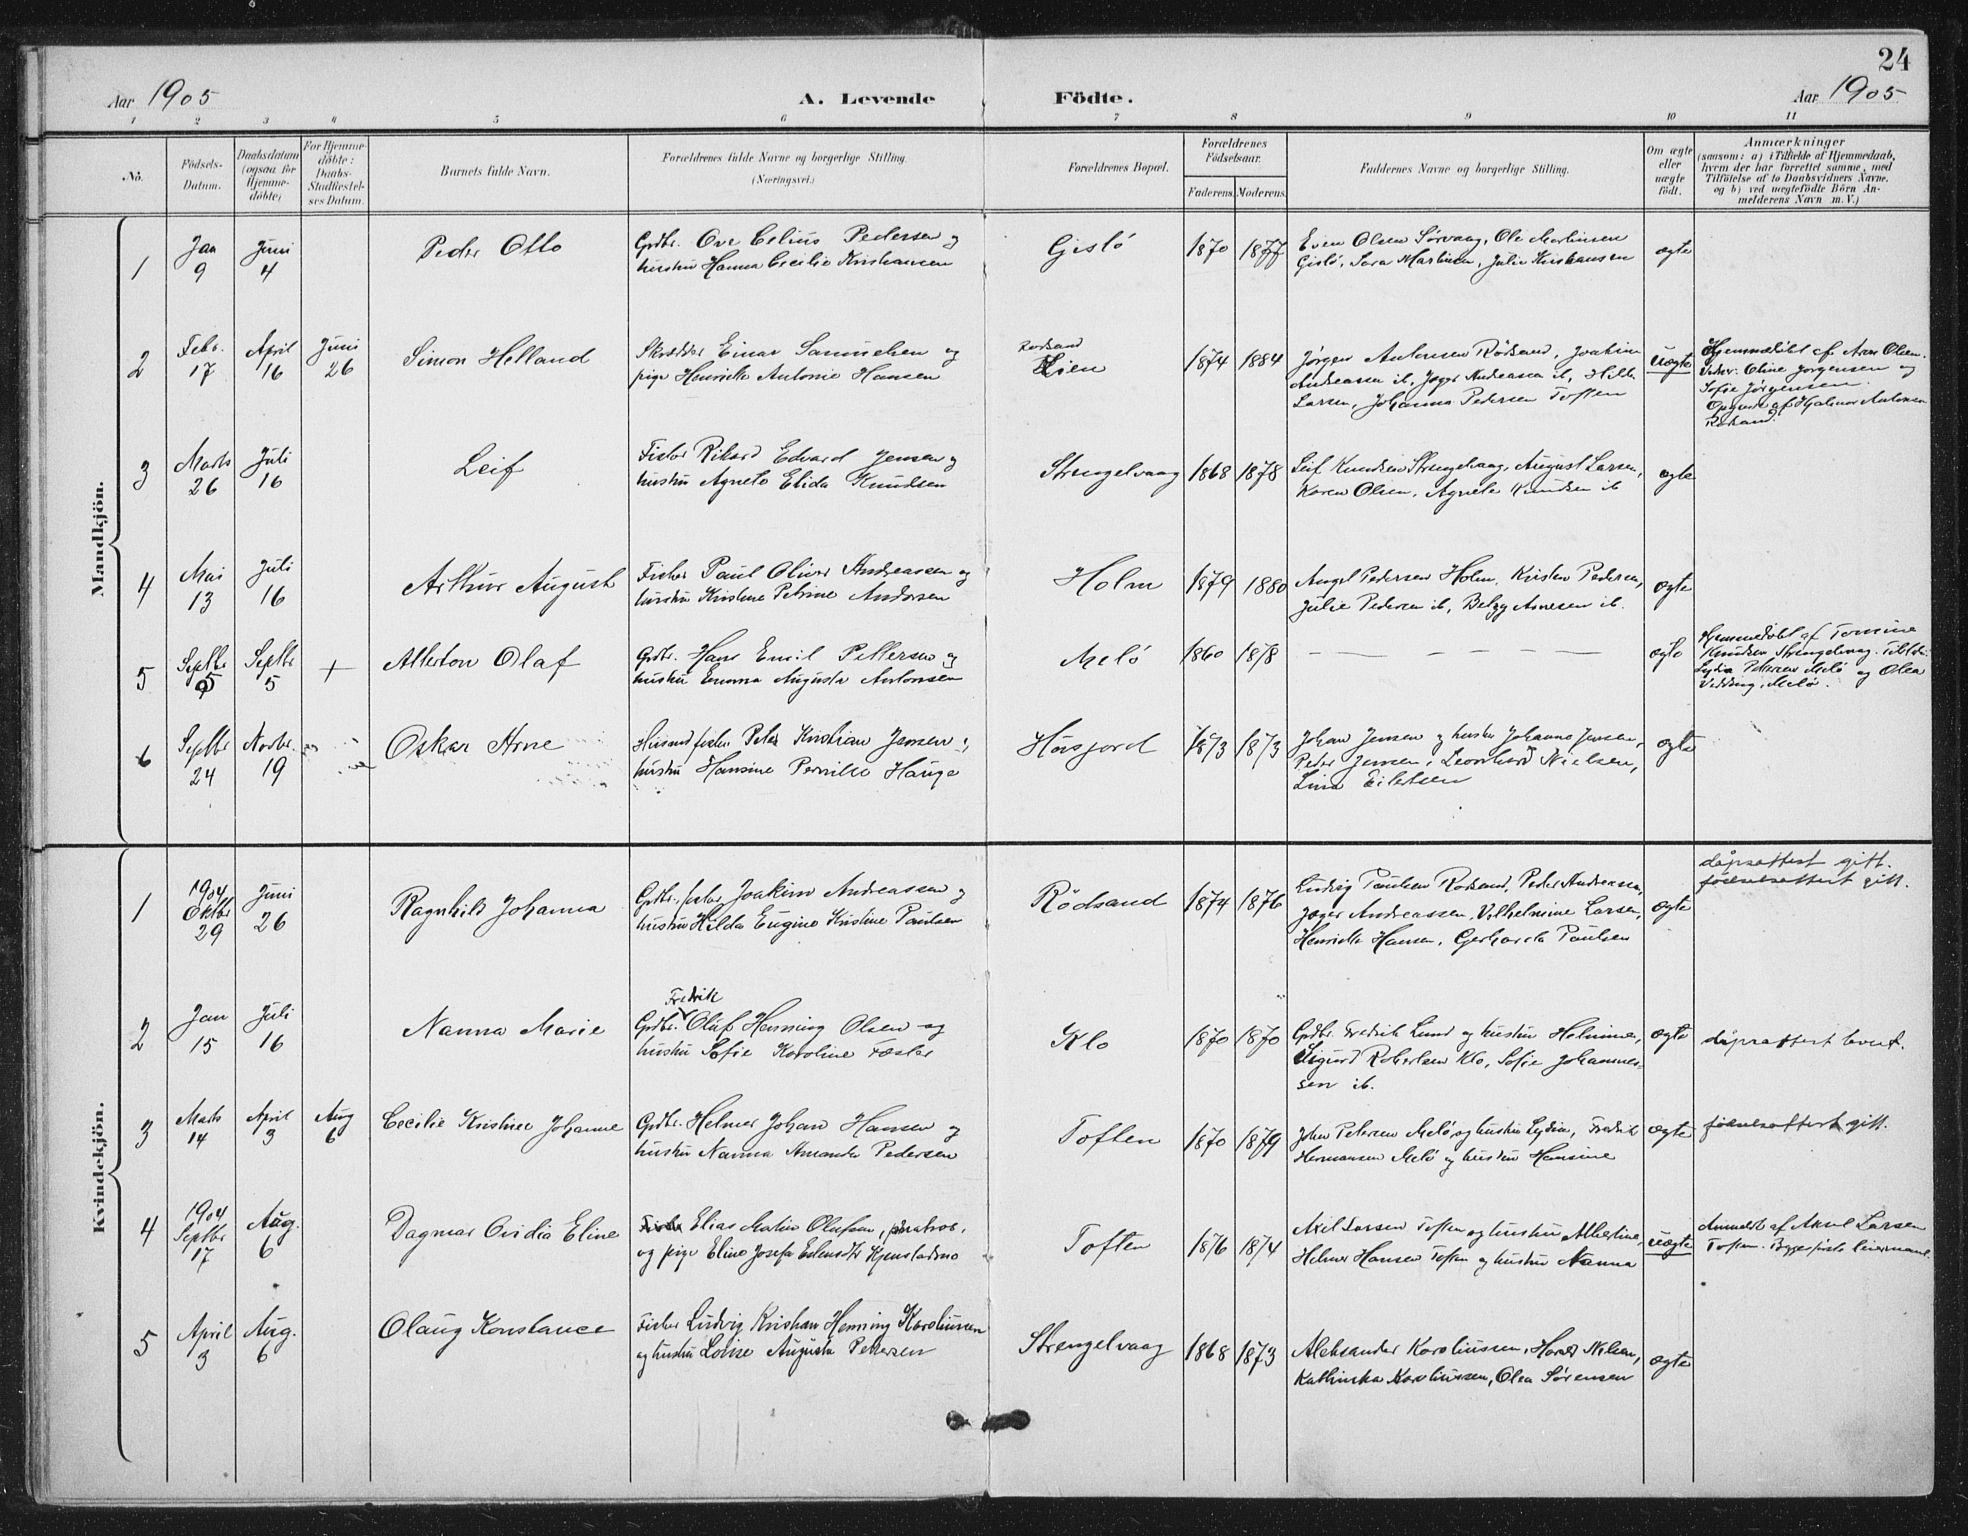 24
Aar 1905
A. Levende Födte.
Aar 1905
1 2 3 4 5 6 7 8 9 10 11
No.
Födsels-
Datum.
Daabsdatum
(ogsaa for
Hjemme-
döbte)
For Hjemme-
döbte:
Daabs-
Stadfæstel-
ses Datum.
Barnets fulde Navn.
Forældrenes fulde Navne og borgerlige Stilling.
(Næringsvei.)
Forældrenes Bopæl.
Forældrenes
Födselsaar.
Faderens. Moderens.
Faddernes Navne og borgerlige Stilling.
Om ægte
eller
uægte
födt.
Anmærkninger
(saasom: a) i Tilfælde af Hjemmedaab,
hvem der har forrettet samme, med
Tilföielse af to Daabsvidners Navne.
og b) ved uægtefödte Börn An-
melderens Navn m. V.)
Mandkjön.
1
Jan
9
Juni
4
Peder Otto
Grdbr. Ove Celius Pedersen og
hustru Hanna Cecilie Kristiansen
Gislö
1870 1877
Even Olsen Sörvaag, Ole Martinsen
Gislö, Sara Martinsen, Julie Kristiansen
ægte
2
Febr.
17
April
16
Juni
26
Simon Helland
Skrædder Einar Samuelsen og
pige Henrikke Antonie Hansen
Rödsand
Lien
1874 1884
Jörgen Antonsen Rödsand, Joakim
Andreassen ib, Jæger Andreassen ib, Hilda
Larsen, Johanna Pedersen Toften
uægte
Hjemmedöbt af Arne Olsen.
Vidner: Oline Jörgensen og
Sofie Jörgensen.
Opgivet af Hjalmar Antonsen
3
Marts
26
Juli
16
Leif
Fisker Rikard Edvard Jensen og
hustru Agnete Elida Knudsen
Strengelvaag
1868 1878
Leif Knudsen Strengelvaag, August Larsen,
Karen Olsen, Agnete Knudsen ib
ægte
4
Mai
13
Juli
16
Arthur August
Fisker Paul Oliver Andreassen og
hustru Kristine Petrine Andersen
Holm
1879 1880
Angel Pedersen Holm, Kristen Pedersen,
Julie Pedersen ib, Betzy Arnesen ib.
ægte
5
Septbr
5
Septbr
5
+
Allerton Olaf
Grdbr. Hans Emil Pettersen og
hustru Emma Augusta Antonsen
Melö
1860 1878
— — — — —
ægte
Hjemmedöbt af Tomine
Knudsen Strengelvag. Tilstede:
Lydia Petersen Melö og Olea
Vedding, Melö.
6
Septbr
24
Novbr.
19
Oskar Arne
Husmd fisker Peter Kristian Jensen og
hustru Hansine Pernille Hauge
Haasjord
1873 1873
Johan Jensen og hustru Johanna Jensen,
Peder Jensen, Leonhard Nielsen,
Lina Eilertsen
ægte
Kvindekjön.
1
1904
Oktbr
29
Juni
26
Ragnhild Johanna
Grdbr. fisker Joakim Andreassen og
hustru Hilda Eugine Kristine Paulsen
Rödsand
1874 1876
Ludvig Paulsen Rödsand, Peder Andreassen,
Jæger Andreassen, Vilhelmine Larsen,
Henrikke Hansen, Gerharda Paulsen
ægte
dåpsattest gitt.
födselsattest gitt.
2
Jan
15
Juli
16
Nanna Marie
Fredrik
Grdbr. Olaf Henning Olsen og
hustru Sofie Karoline Fæster
Klo
1870 1870
Grdbr. Fredrik Lund og hustru Helmine,
Sigurd Robertsen Klo, Sofie Johannes-
sen ib.
ægte
dåpsattest
3
Marts
14
April
3
Aug
6
Cecilie Kristine Johanne
Grdbr. Helmer Johan Hansen og
hustru Nanna Amanda Pedersen
Toften
1870 1879
John Petersen Melö og hustru Lydia, Fredrik
Hermansen Melö og hustru Hansine
ægte
födselsattest gitt.
4
1904
Septbr
17
Aug.
6
Dagmar Ovidia Eline
Elias Martin Olufsen,
og pige Eline Josefa
Toften
1876 1874
Axel Larsen Toften og hustru Albertine,
Helmer Hansen Toften og hustru Nanna
uægte
Anmeldt af Axel Larsen
Toften. Begges förste leiermaal.
5
April
3
Aug.
6
Olaug Konstance
Fisker Ludvig Kristian Henning Karoliussen
og hustru Lovise Augusta Pettersen
Strengelvaag
1868 1873
Aleksander Karoliussen, Harald Nilsen,
Kathinka Karoliussen, Olea Sörensen
ægte